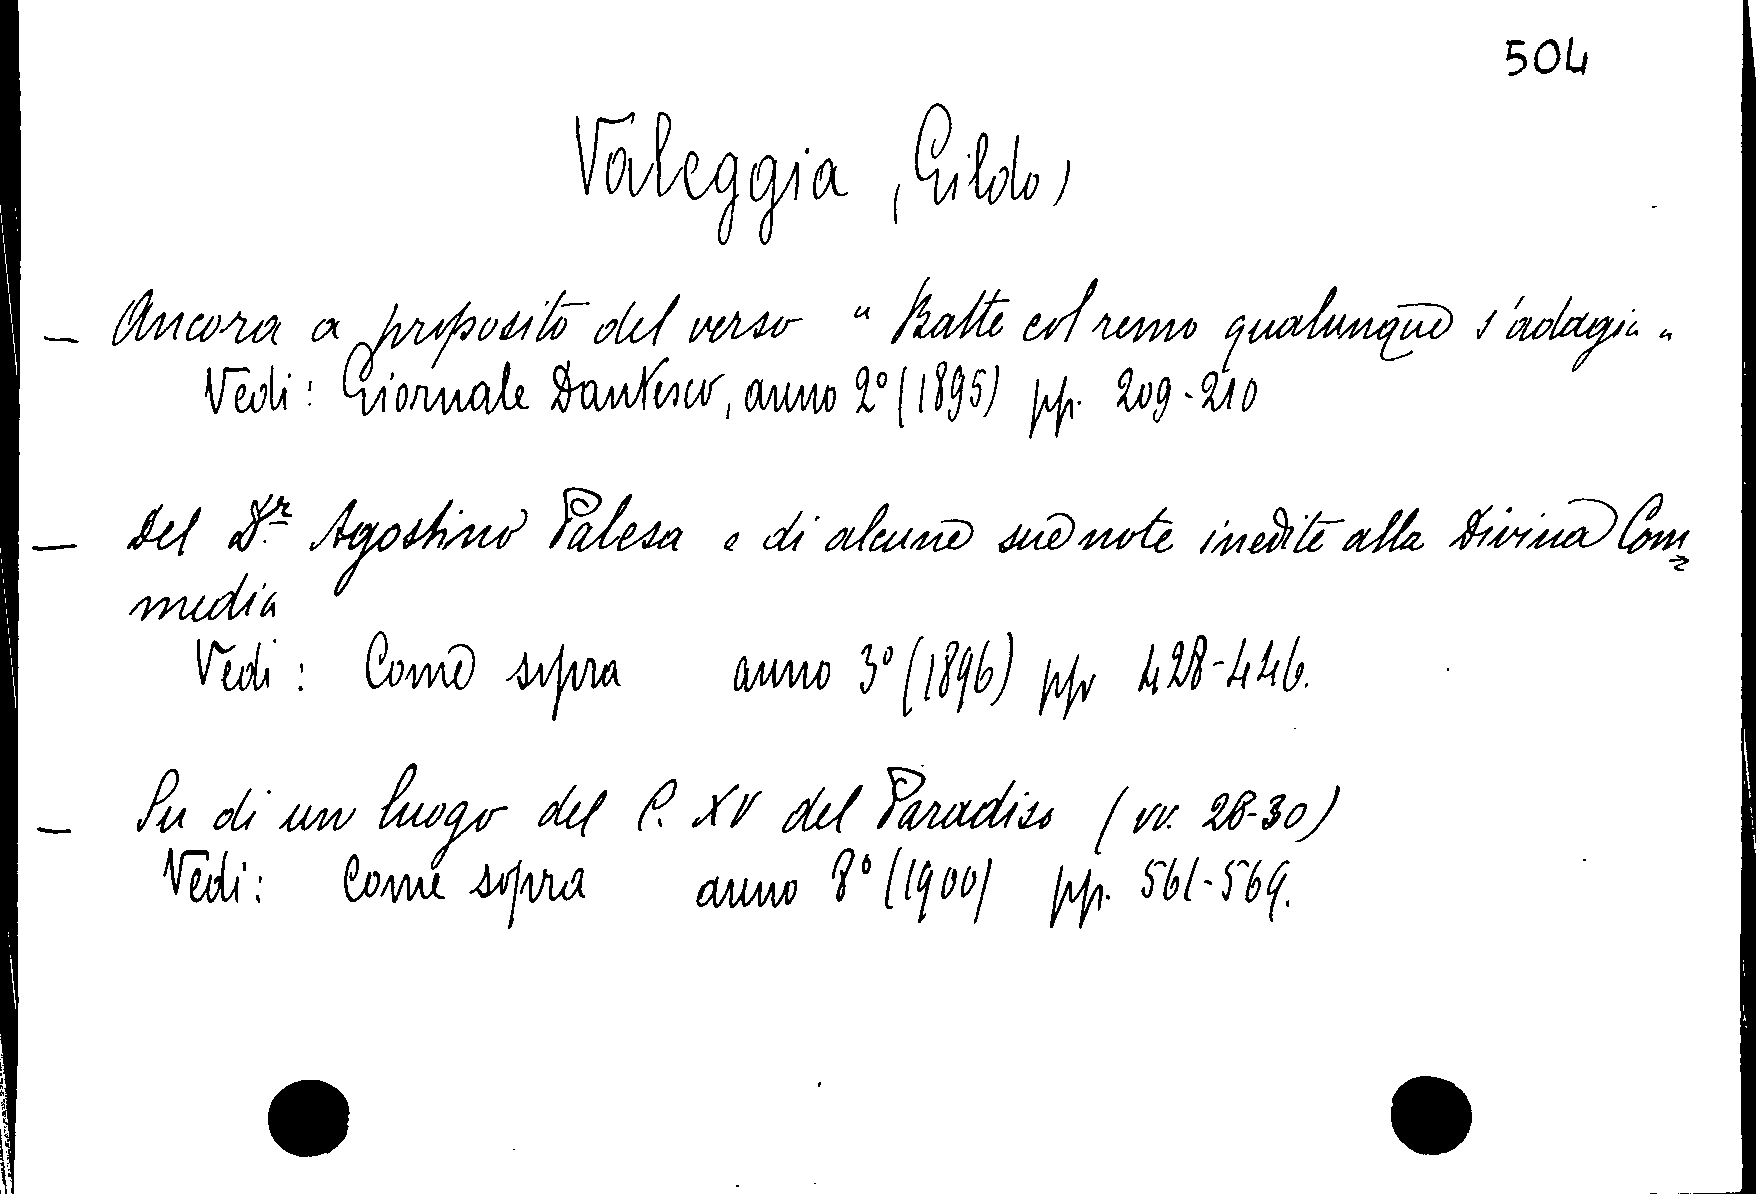 504
Valeggia (Gildo)
— Ancora a proposito del verso " Batte col remo qualunque s'adagia "
Vedi: Giornale Dantesco, anno 2° (1895) pp. 209-210
— Del Dr. Agostino Palesa e di alcune sue note inedite alla Divina Com=
media
Vedi: Come sopra anno 3° (1896) pp 428-446.
— Su di un luogo del C. XV del Paradiso (vv. 28-30)
Vedi: Come sopra anno 8° (1900) pp. 561-569.